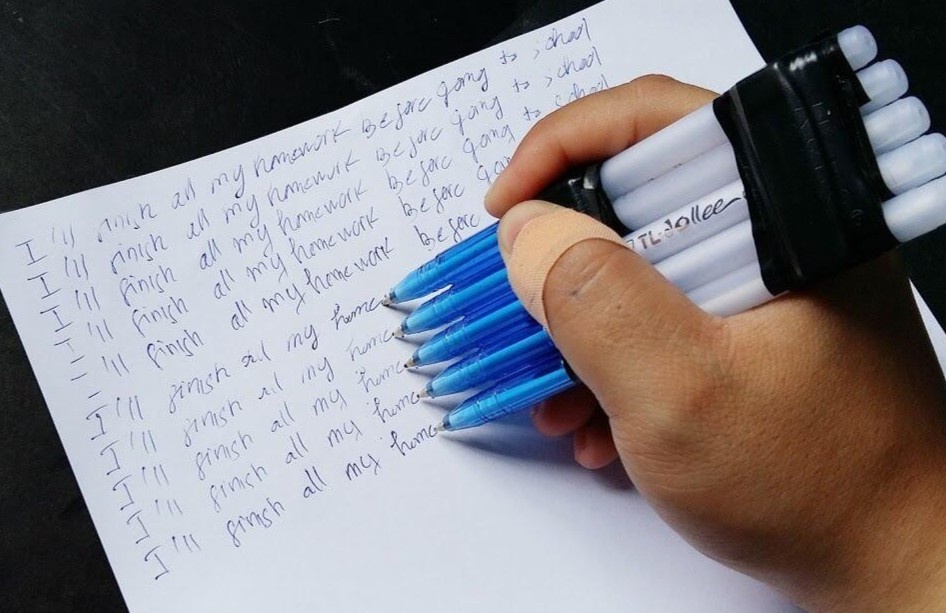 I'll finish all my homework Before going to school
I'll finish all my homework Before going to school
I'll finish all my homework Before going to school
I'll finish all my homework Before
I'll finish all my homework Before
I'll finish all my home
I'll finish all my home
I'll finish all my home
I'll finish all my home
I'll finish all my home
TL-dollee